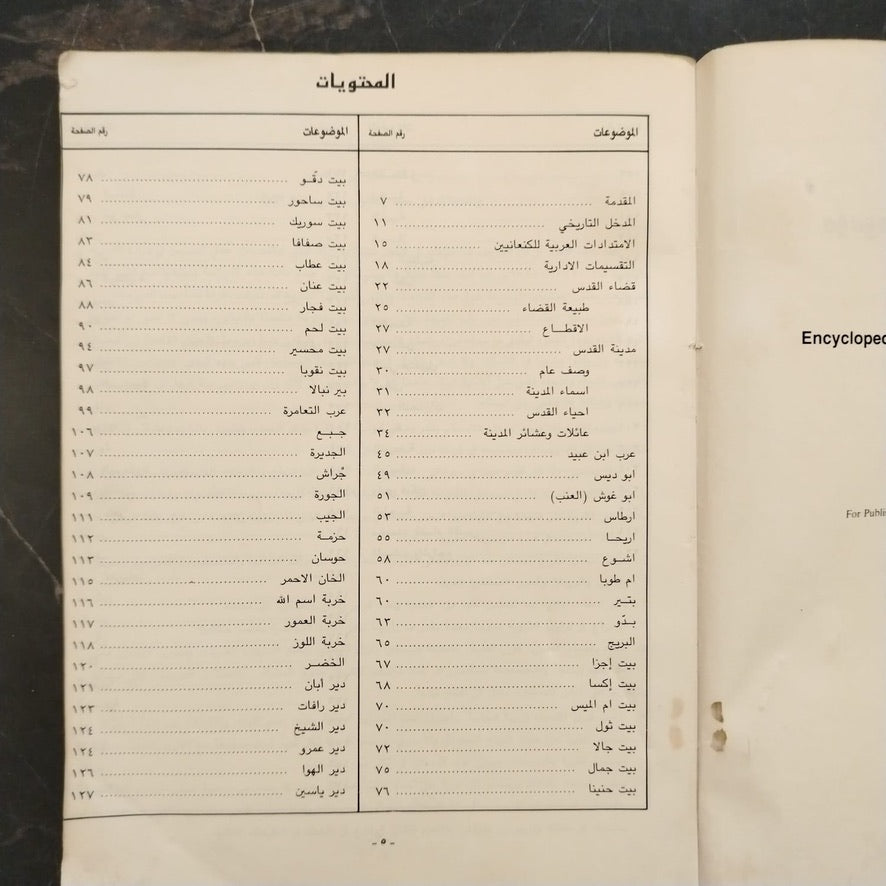 المحتويات
الموضوعات رقم الصفحة
المقدمة ٧
المدخل التاريخي ١١
الامتدادات العربية للكنعانيين ١٥
التقسيمات الادارية ١٨
قضاء القدس ٢٢
طبيعة القضاء ٢٥
الاقطـــاع ٢٧
مدينة القدس ٢٧
وصف عام ٣٠
اسماء المدينة ٣١
احياء القدس ٣٢
عائلات وعشائر المدينة ٣٤
عرب ابن عبيد ٤٥
ابو ديس ٤٩
ابو غوش (العنب) ٥١
ارطاس ٥٣
اريحـا ٥٥
اشـوع ٥٨
ام طوبا ٦٠
بتـير ٦٠
بـدّو ٦٣
البريج ٦٥
بيت إجزا ٦٧
بيت إكسا ٦٨
بيت ام الميس ٧٠
بيت ثول ٧٠
بيت جالا ٧٢
بيت جمال ٧٥
بيت حنينا ٧٦
الموضوعات رقم الصفحة
بيت دقّـو ٧٨
بيت ساحور ٧٩
بيت سوريك ٨١
بيت صفافا ٨٣
بيت عطاب ٨٤
بيت عنان ٨٦
بيت فجار ٨٨
بيت لحم ٩٠
بيت محسير ٩٤
بيت نقوبا ٩٧
بير نبالا ٩٨
عرب التعامرة ٩٩
جـبـع ١٠٦
الجديرة ١٠٧
جُراش ١٠٨
الجورة ١٠٩
الجيب ١١١
حزمـة ١١٢
حوسان ١١٣
الخان الاحمر ١١٥
خربة اسم الله ١١٦
خربة العمور ١١٧
خربة اللوز ١١٨
الخضـر ١٢٠
دير أبان ١٢١
دير رافات ١٢٣
دير الشيخ ١٢٤
دير عمرو ١٢٤
دير الهوا ١٢٦
دير ياسين ١٢٧
- ٥ -
Encyclopec
For Publis